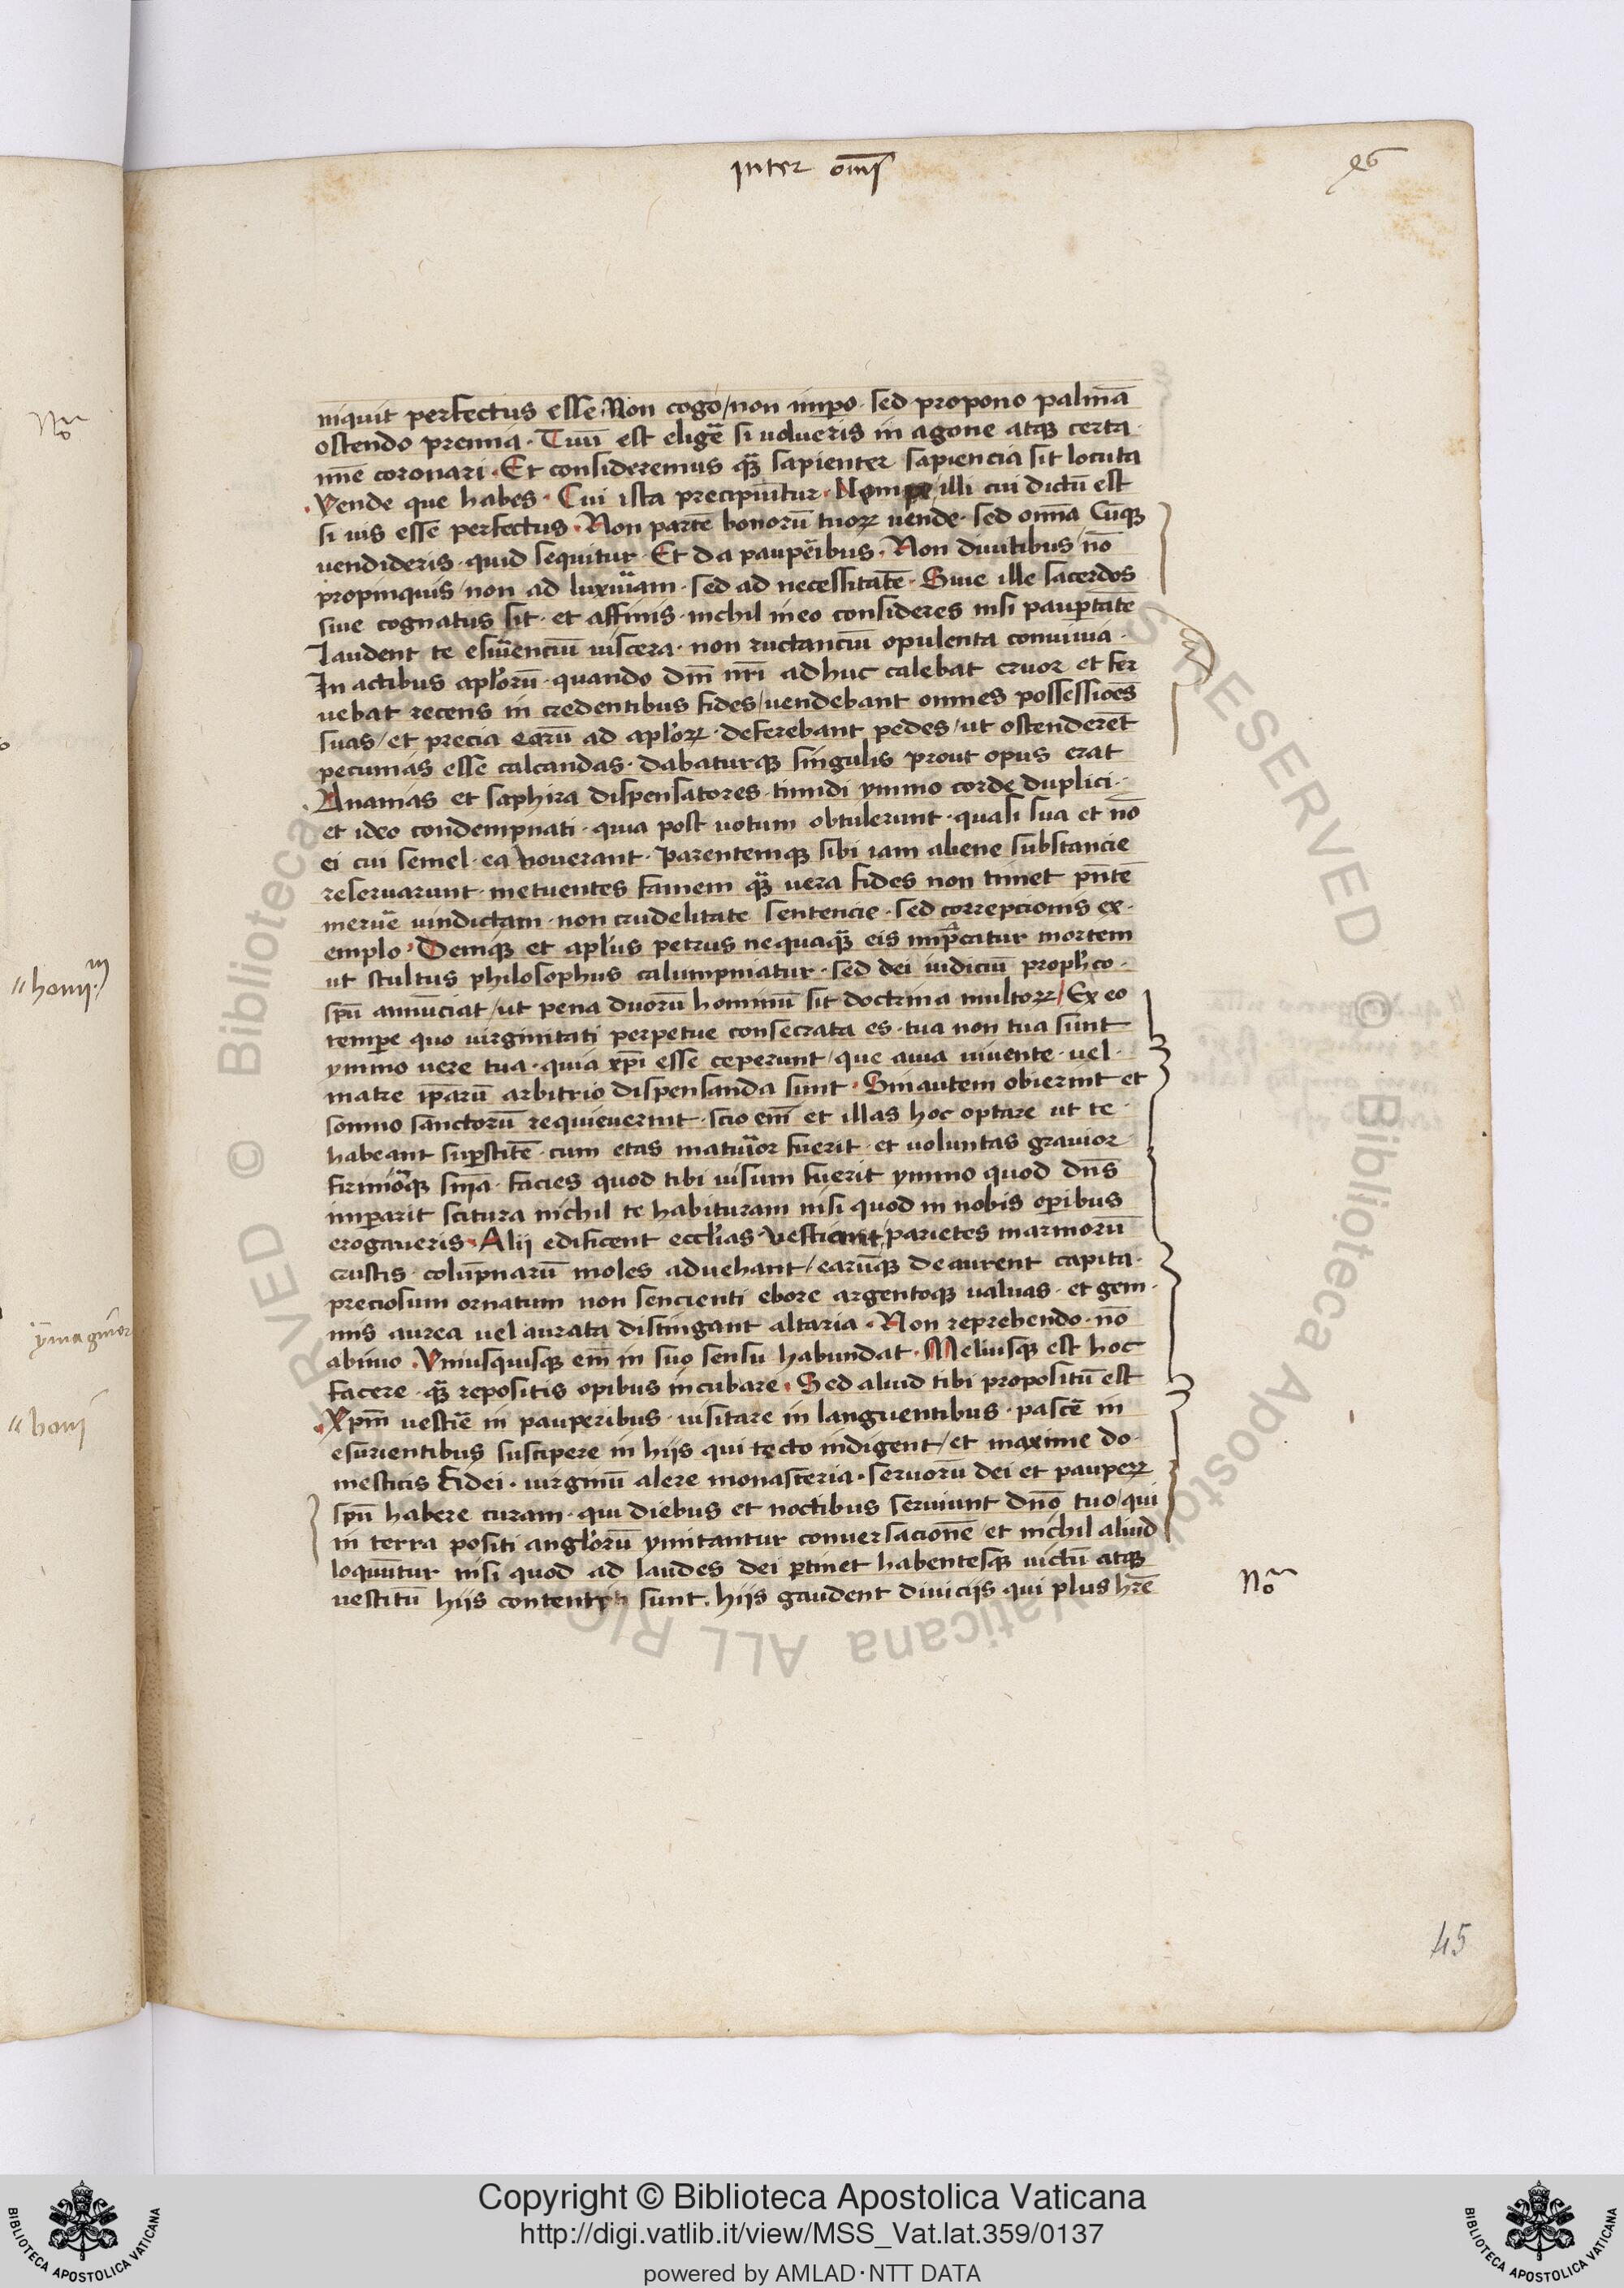 Inter om̄s
96
inquit perfectus esse. Non cogo / non imp̲o · sed propono palmā
ostendo premia · Tuū est eligē si volueris in agone atqꝫ certa
mīe coronari · Et consideremus qꝫ̄ sapienter sapiencia sit locuta
Vende que habes · Cui ista precipiūtur · Nempe / illi cui dictū est
si vis esse perfectus · Non partē bonorū tuoꝝ vende · sed om̄ia Cūqꝫ
vendideris · quid sequitur · Et da paupēibus · Non divitibus / nō
propinquis / non ad luxuͣiam · sed ad necessitatē · Sive ille sacerdos
sive cognatus sit · et affinis · nichil in eo consideres nisi paup̲tatē
Laudent te esuͥenciū viscera · non ructanciū opulenta convivia ·
In actibus apl'orū · quando dn̄i nr̄i adhuc calebat cruor et fer
vebat recens in credentibus fides / vendebant omnes possessiōes
suas / et precia earū ad apl'oꝝ · deferebant pedes / ut ostenderēt
pecunias esse calcandas · dabaturqꝫ singulis prout opus erat
Ananias et saphira dispensatores · timidi ymmo corde duplici ·
et ideo condempnati · quia post votum obtulerunt · quasi sua et nō
ei cui semel · ea voverant · Partemqꝫ sibi iam aliene substancie
reservarunt · metuentes famem qꝫ̄ vera fides non timet pn̄tē
meruē vindictam · non crudelitate sentencie · sed correpcionis ex ·
emplo · Deniqꝫ et apl'us petrus nequaqꝫ̄ eis imp̄catur mortem
ut stultus philosophus calumpniatur · sed dei iudiciū proph'co ·
sp̄u annūciat / ut pena duorū hominū sit doctrina multoꝝ / Ex eo
temp̲e quo virginitati perpetue consecrata es · tua non tua sunt
ymmo vere tua · quia xp̄i esse ceperunt / que avia vivente · vel ·
matre ip̄arū arbitrio dispensanda sunt · Sin autem obierint et
somno sanctorū requieverint · scio em̄ et illas hoc optare ut te ·
habeant sup̲stitē · cum etas matuͥor fuerit · et voluntas gravior
firmiorqꝫ sn̄ia · facies quod tibi visum fuerit ymmo quod dn̄s
imp̲arit scitura nichil te habituram nisi quod in nobis op̲ibus
erogaveris · Alij edificent eccl'ias · vestiant / parietes marmorū
crustis · colūpnarū moles advehant / earūqꝫ deaurent capita ·
preciosum ornatum non sencienti ebore argentoqꝫ valvas · et gem ·
mis aurea vel aurata distingant altaria · Non reprehendo · nō
abnuo · Vnusquisqꝫ em̄ in suo sensu habundat · Meliusqꝫ est hoc
facere · qꝫ̄ repositis opibus incubare · Sed aliud tibi propositū est
Xp̄m vestiē in pauperibus · visitare in languentibus · pascē in
esurientibus suscipere in hijs qui tecto indigent / et maxime do ·
mesticis fidei · virginū alere monasteria · servorū dei et paup̲eꝝ
sp̄u habere curam · qui diebus et noctibus serviunt dn̄o tuo / qui
in terra positi angl'orū ymitantur conversacionē / et nichil aliud
loquūtur nisi quod ad laudes dei p̲tinet habentesqꝫ victū atqꝫ
vestitū hijs contenti sunt. hijs gaudent divicijs qui plus hr̄e
No
45
Noͣ
"honi
ymaginor
"honi
Copyright © Biblioteca Apostolica Vaticana
http://digi.vatlib.it/view/MSS_Vat.lat.359/0137
powered by AMLAD·NTT DATA
BIBLIOTECA APOSTOLICA VATICANA
BIBLIOTECA APOSTOLICA VATICANA